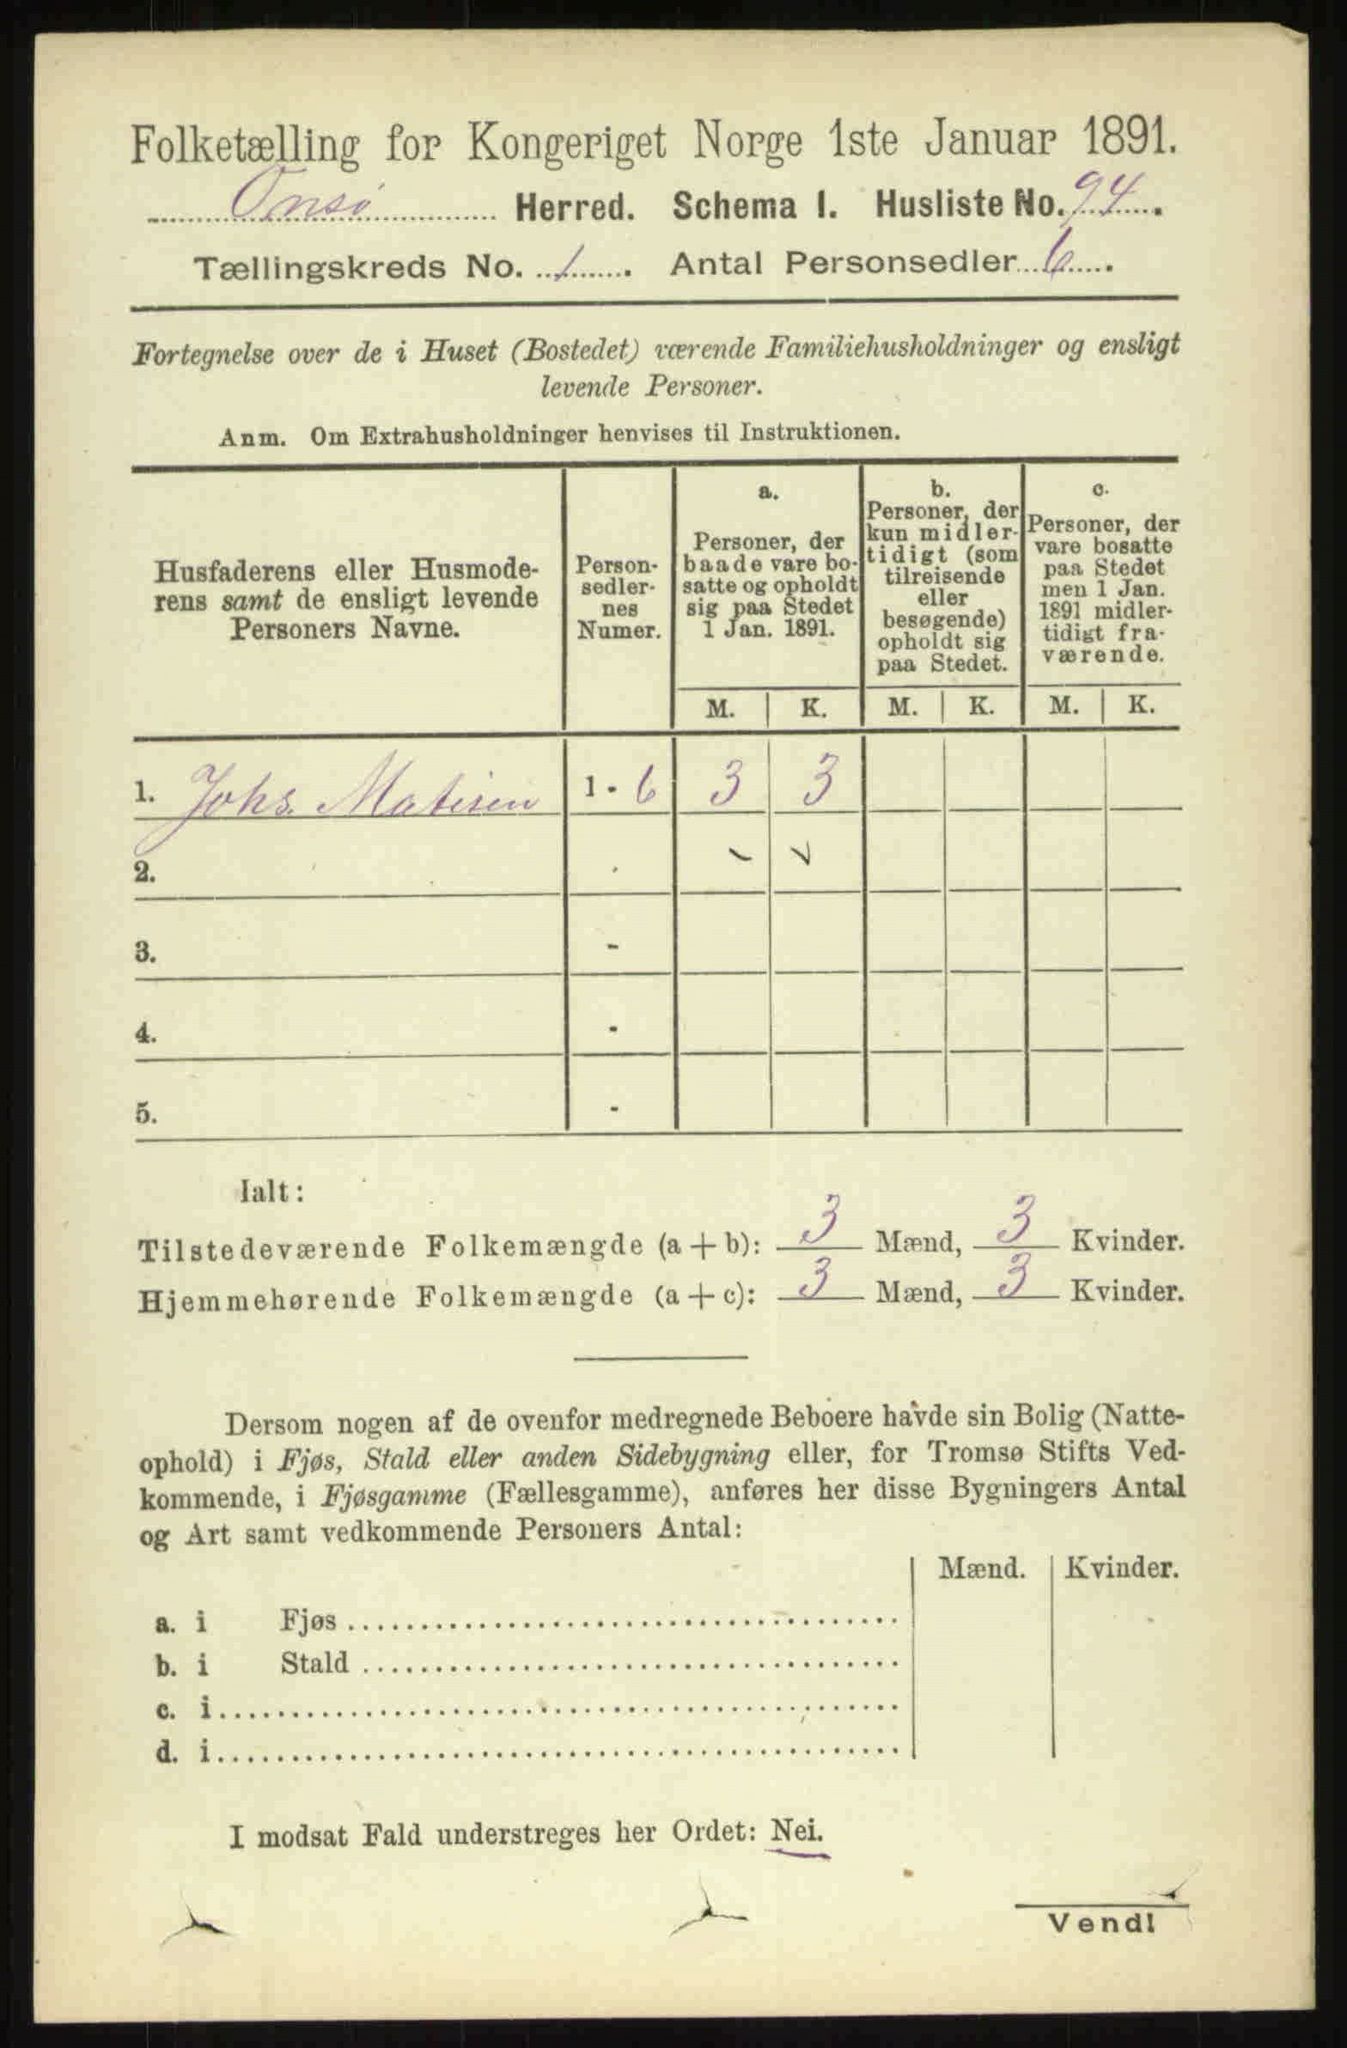 Folketælling for Kongeriget Norge 1ste Januar 1891.
Onsø Herred. Schema 1. Husliste No. 94.
Tællingskreds No. 1. Antal Personsedler 6.
Fortegnelse over de i Huset (Bostedet) værende Familiehusholdninger og ensligt
levende Personer.
Anm. Om Extrahusholdninger henvises til Instruktionen.
Husfaderens eller Husmode-
rens samt de ensligt levende
Personers Navne.
Person-
sedler-
nes
Numer.
a.
Personer, der
baade vare bo-
satte og opholdt
sig paa Stedet
1 Jan. 1891.
b.
Personer, der
kun midler-
tidigt (som
tilreisende
eller
besøgende)
opholdt sig
paa Stedet.
c.
Personer, der
vare bosatte
paa Stedet
men 1 Jan.
1891 midler-
tidigt fra-
værende.
M. K. M. K. M. K.
1. Johs. Matisen 1 - 6 3 3
2.
3. -
4. -
5. -
Ialt:
Tilstedeværende Folkemængde (a + b): 3 Mænd, 3 Kvinder.
Hjemmehørende Folkemængde (a + c): 3 Mænd, 3 Kvinder.
Dersom nogen af de ovenfor medregnede Beboere havde sin Bolig (Natte-
ophold) i Fjøs, Stald eller anden Sidebygning eller, for Tromsø Stifts Ved-
kommende, i Fjøsgamme (Fællesgamme), anføres her disse Bygningers Antal
og Art samt vedkommende Personers Antal:
Mænd. Kvinder.
a. i Fjøs
b. i Stald
c. i
d. i
I modsat Fald understreges her Ordet: Nei.
Vend!